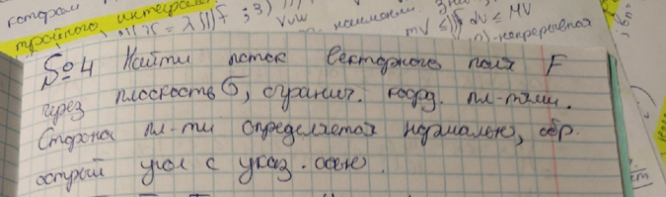 котором
тройного интеграл
наименьш.
mV ≤ ∭ dV ≤ MV
непрерывная
№4 Найти поток векторного поля F
через плоскость б, огранич. коорд. пл-тями.
Сторона пл-ти определяется нормалью, обр.
острый угол с указ. осью.